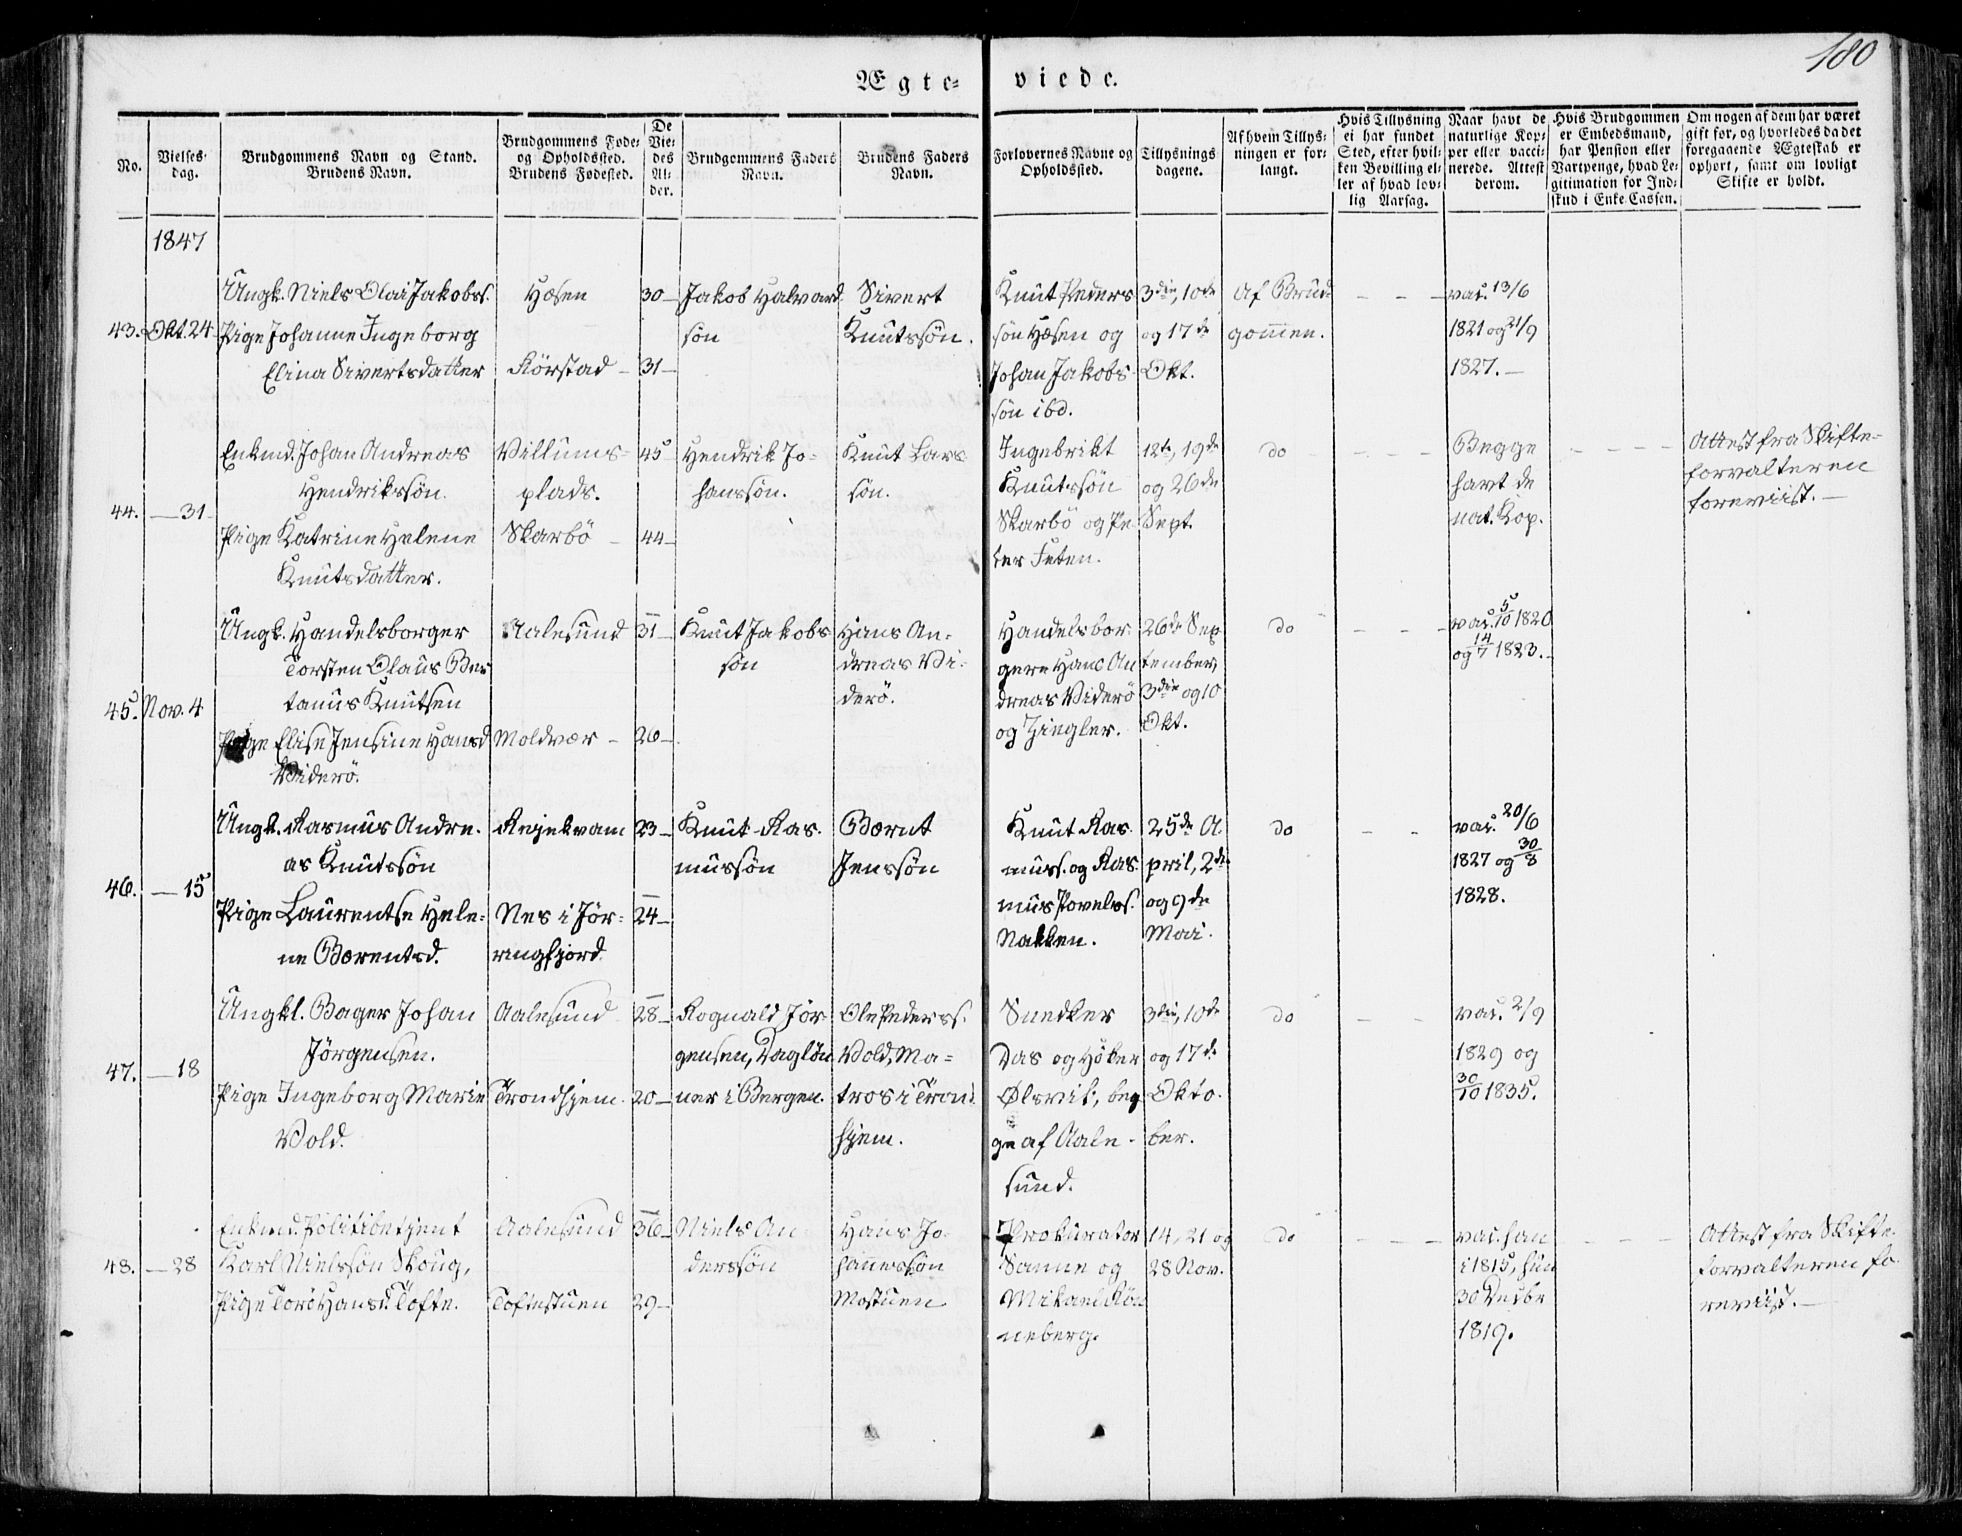 180
Ægte- viede.
No.
Vielses-
dag.
Brudgommens Navn og Stand.
Brudens Navn.
Brudgommens Føde-
og Opholdssted.
Brudens Fødested.
De
Vie-
des
Al-
der.
Brudgommens Faders
Navn.
Brudens Faders
Navn.
Forlovernes Navne og
Opholdssted.
Tillysnings
dagene.
Af hvem Tillys-
ningen er for-
langt.
Hvis Tillysning
ei har fundet
Sted, efter hvil-
ken Bevilling el-
ler af hvad lov-
lig Aarsag.
Naar havt de
naturlige Kop-
per eller vacci-
nerede. Attest
derom.
Hvis Brudgommen
er Embedsmand,
har Pension eller
Vartpenge, hvad Le-
gitimation for Ind-
skud i Enke Cassen.
Om nogen af dem har været
gift før, og hvorledes da det
foregaaende Ægteskab er
ophørt, samt om lovligt
Skifte er holdt.
1847
43. Okt. 24
Ungk. Niels Olai Jakobss.
Pige Johanne Ingeborg
Elina Sivertsdatter
Hæsen
Rörstad
30
31
Jakob Halvard
sön
Sivert
Knutssön.
Knut Peders
sön Hæsen og
Johan Jakobs
sön ibd.
3die, 10de
og 17de
Okt.
Af Brud-
gommen.
vac. 13/6
1821 og 21/9
1827.
44. — 31
Enkmd. Johan Andreas
Hendrikssön.
Pige Katrine Helene
Knutsdatter.
Villums-
plads.
Skarbö
45
44
Hendrik Jo-
hanssön.
Knut Lars
sön.
Ingebrikt
Knutssön
Skarbö og Pe
ter Feten.
12te, 19de
og 26de
Sept.
do
Begge
havt de
nat. Kop.
Attest fra Skifte-
forvalteren
foreviist.
45. Nov. 4
Ungk. Handelsborger
Torsten Olaus Ber
tanus Knutsen
Pige Elise Jensine Hansd
Viderö.
Aalesund
Moldvær
31
26
Knut Jakobs
sön
Hans An-
dreas Vi-
derö.
Handelsbor-
gere Hans An
dreas Viderö
og Ziegler.
26de Sep
tember,
3die og 10
Okt.
do
vac. 5/10 1820
og 14/7 1823.
46. — 15
Ungk. Rasmus Andre-
as Knutssön
Pige Laurentse Hele-
ne Bærentsd.
Rejekvam
Nes i Jör-
ringfjord.
23
24
Knut Ras-
mussön
Bærnt
Jenssön
Knut Ras-
muss. og Ras-
mus Povelss.
Nakken.
25de A-
pril, 2de
og 9de
Mai.
do
vac. 20/6
1827 og 30/8
1828.
47. — 18
Ungkl. Bager Johan
Jörgensen.
Pige Ingeborg Marie
Vold.
Aalesund
Trondhjem.
28
20
Rognald Jör-
gensen, Daglön
ner i Bergen.
Ole Pederss.
Vold, Ma-
tros i Trond
hjem.
Snedker
Das og Höker
Ølsvik, beg
ge af Aale-
sund.
3die, 10de
og 17de
Okto-
ber.
do
vac. 2/9
1829 og
30/10 1835.
48. — 28
Enkmd. Politibetjent
Karl Nielssön Skoug,
Pige Torö Hansd. Tofte.
Aalesund
Toftestuen
36
29
Niels An-
derssön
Hans Jo-
hannessön
Mostuen
Prokurator
Sanne og
Mikael Rön
neberg.
14, 21 og
28 Nov.
do
vac. han
i 1815, hun
30 Decbr
1819.
Attest fra Skifte-
forvalteren fo-
reviist.